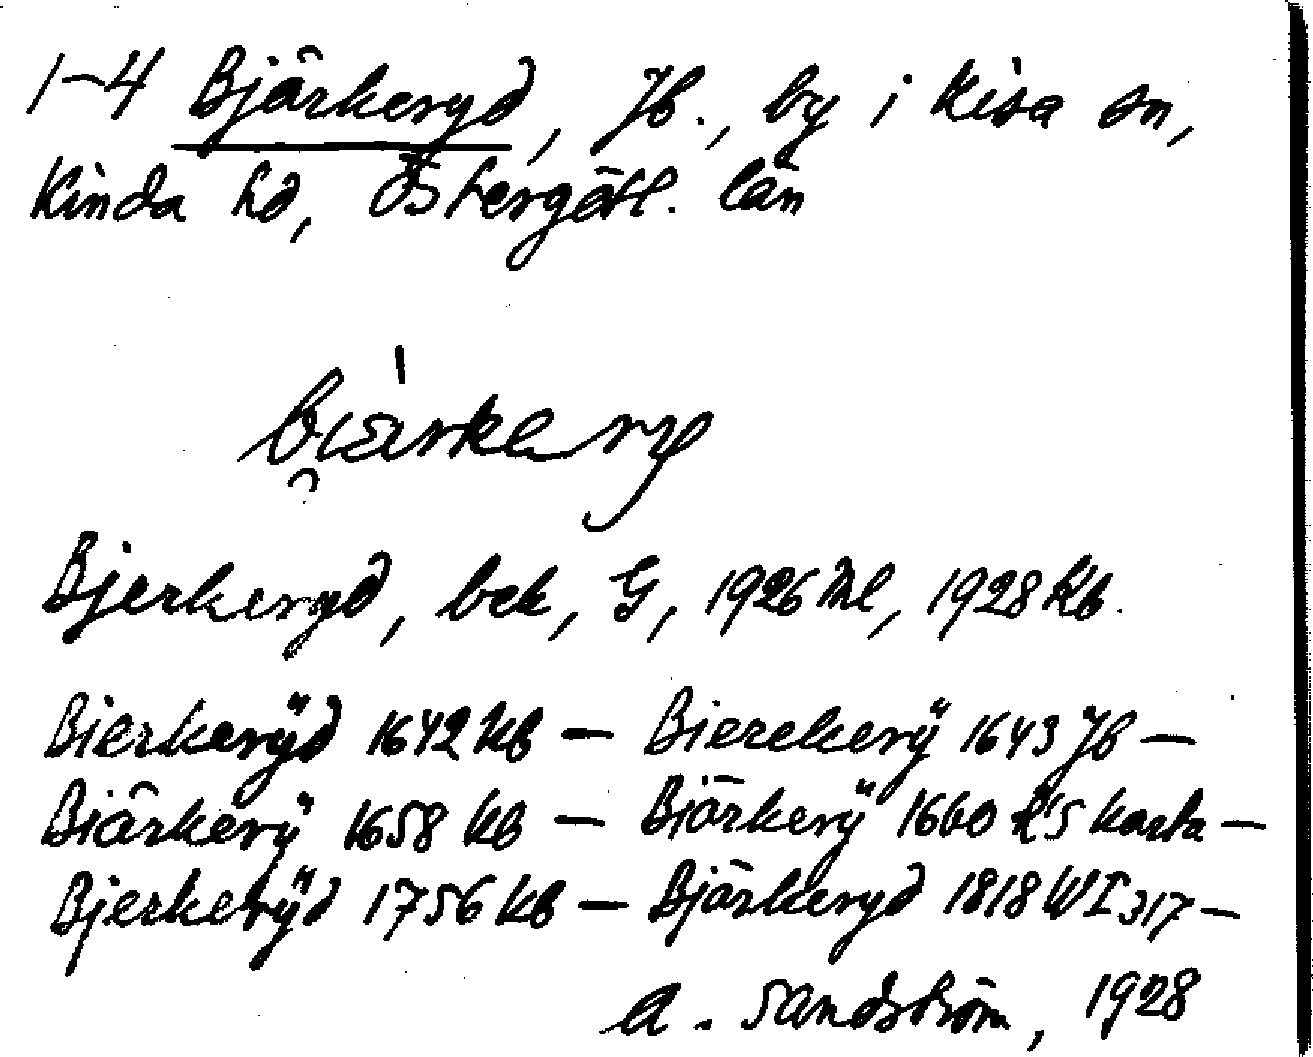 1-4 Bjärkeryd, Jb., by i Kisa sn,
Kinda hd, Östergötl. län
biärkery
Bjerkeryd, bek, G, 1926 Ml, 1928 Kb.
Bierkerÿd 1642 KB — Bierekerÿ 1643 Jb —
Biärkerÿ 1658 KB — Biärkerÿ 1660 karta —
Bjerkerÿd 1756 KB — Bjärkeryd 1818 WI 317 —
A. Sandström, 1928